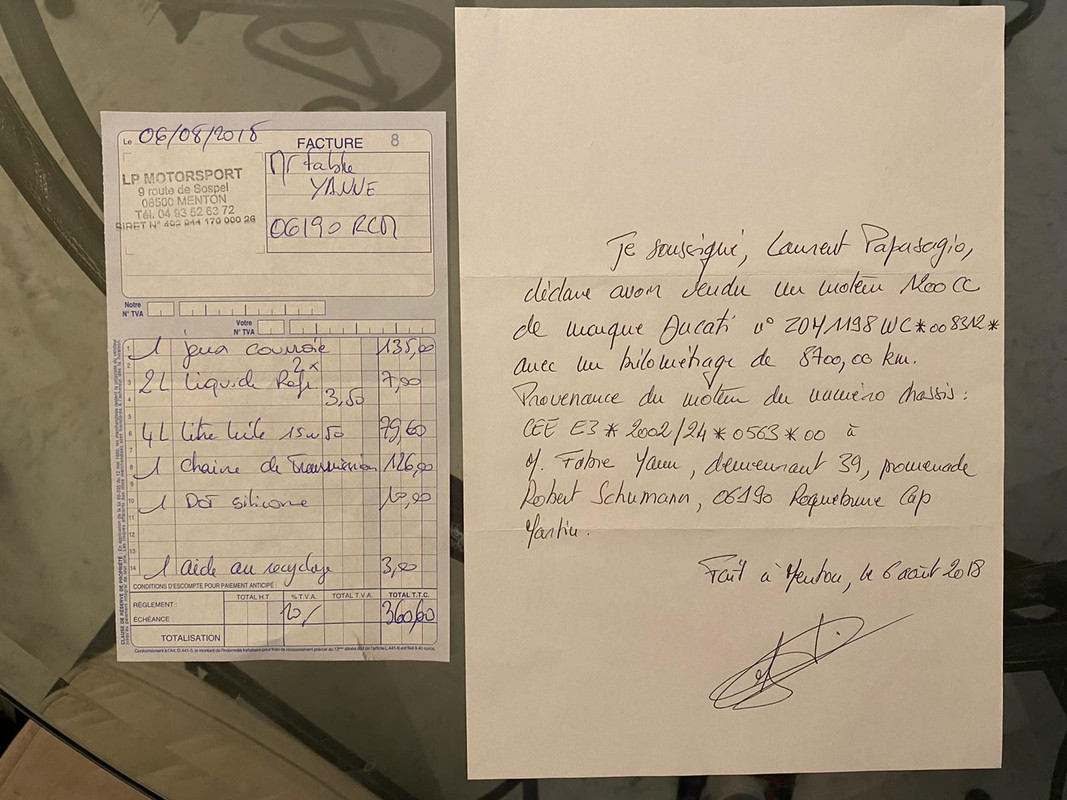 Le 06/08/2018
FACTURE 8
LP MOTORSPORT
9 route de Sospel
06500 MENTON
Tél. 04 93 52 63 72
SIRET N° 492 944 170 000 26
Mr Fabre
YANNE
06190 RCM
Notre
N° TVA
Votre
N° TVA
1 jeux courroie 135,00
2L Liquide Refr 2x 3,50 7,00
4L litre huile 15w50 79,60
1 chaine de Transmission 126,00
1 Dot silicone 10,00
1 aide au recyclage 3,00
CONDITIONS D'ESCOMPTE POUR PAIEMENT ANTICIPÉ :
RÈGLEMENT :
ÉCHÉANCE :
TOTAL H.T. % T.V.A. TOTAL T.V.A. TOTAL T.T.C.
20/ 360,60
TOTALISATION
Je soussigné, Laurent Papasagio,
déclare avoir vendu un moteur 1200 CC
de marque Ducati n° ZDM1198WC*008312*
avec un kilométrage de 8700,00 km.
Provenance du moteur du numéro chassis :
CEE E3 * 2002/24 * 0563 * 00 à
M. Fabre Yann, demeurant 39, promenade
Robert Schumann, 06190 Roquebrune Cap
Martin.
Fait à Menton, le 6 août 2018